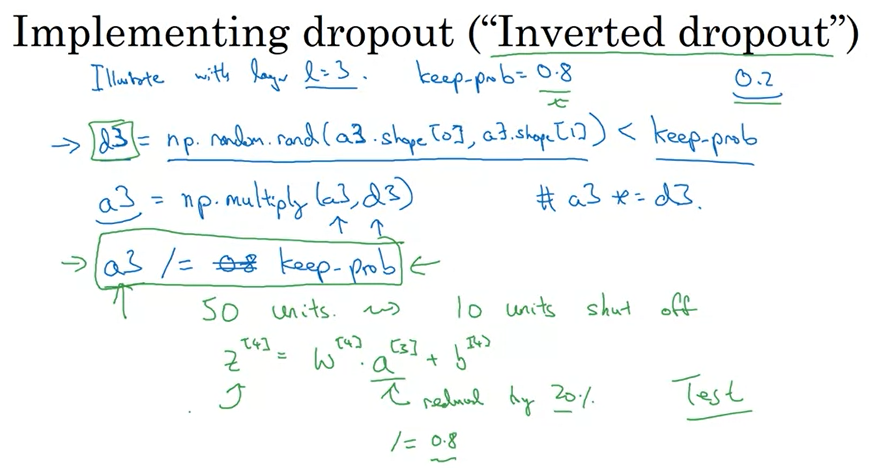 Implementing dropout ("Inverted dropout")
Illustrate with layer l=3. keep-prob = 0.8 0.2
→ d3 = np.random.rand(a3.shape[0], a3.shape[1]) < keep-prob
a3 = np.multiply(a3, d3) # a3 *= d3.
→ a3 /= 0.8 keep-prob ←
50 units. ⇝ 10 units shut off
z^[4] = W^[4] · a^[3] + b^[4]
reduced by 20%. Test
/= 0.8